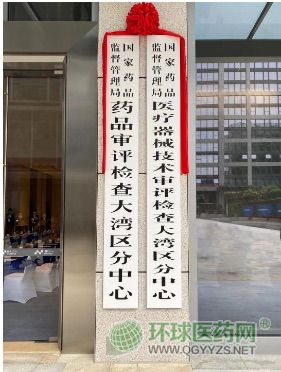 国家药品
监督管理局
医疗器械技术审评检查大湾区分中心
国家药品
监督管理局
药品审评检查大湾区分中心
环球医药网®
WWW.QGYYZS.NET